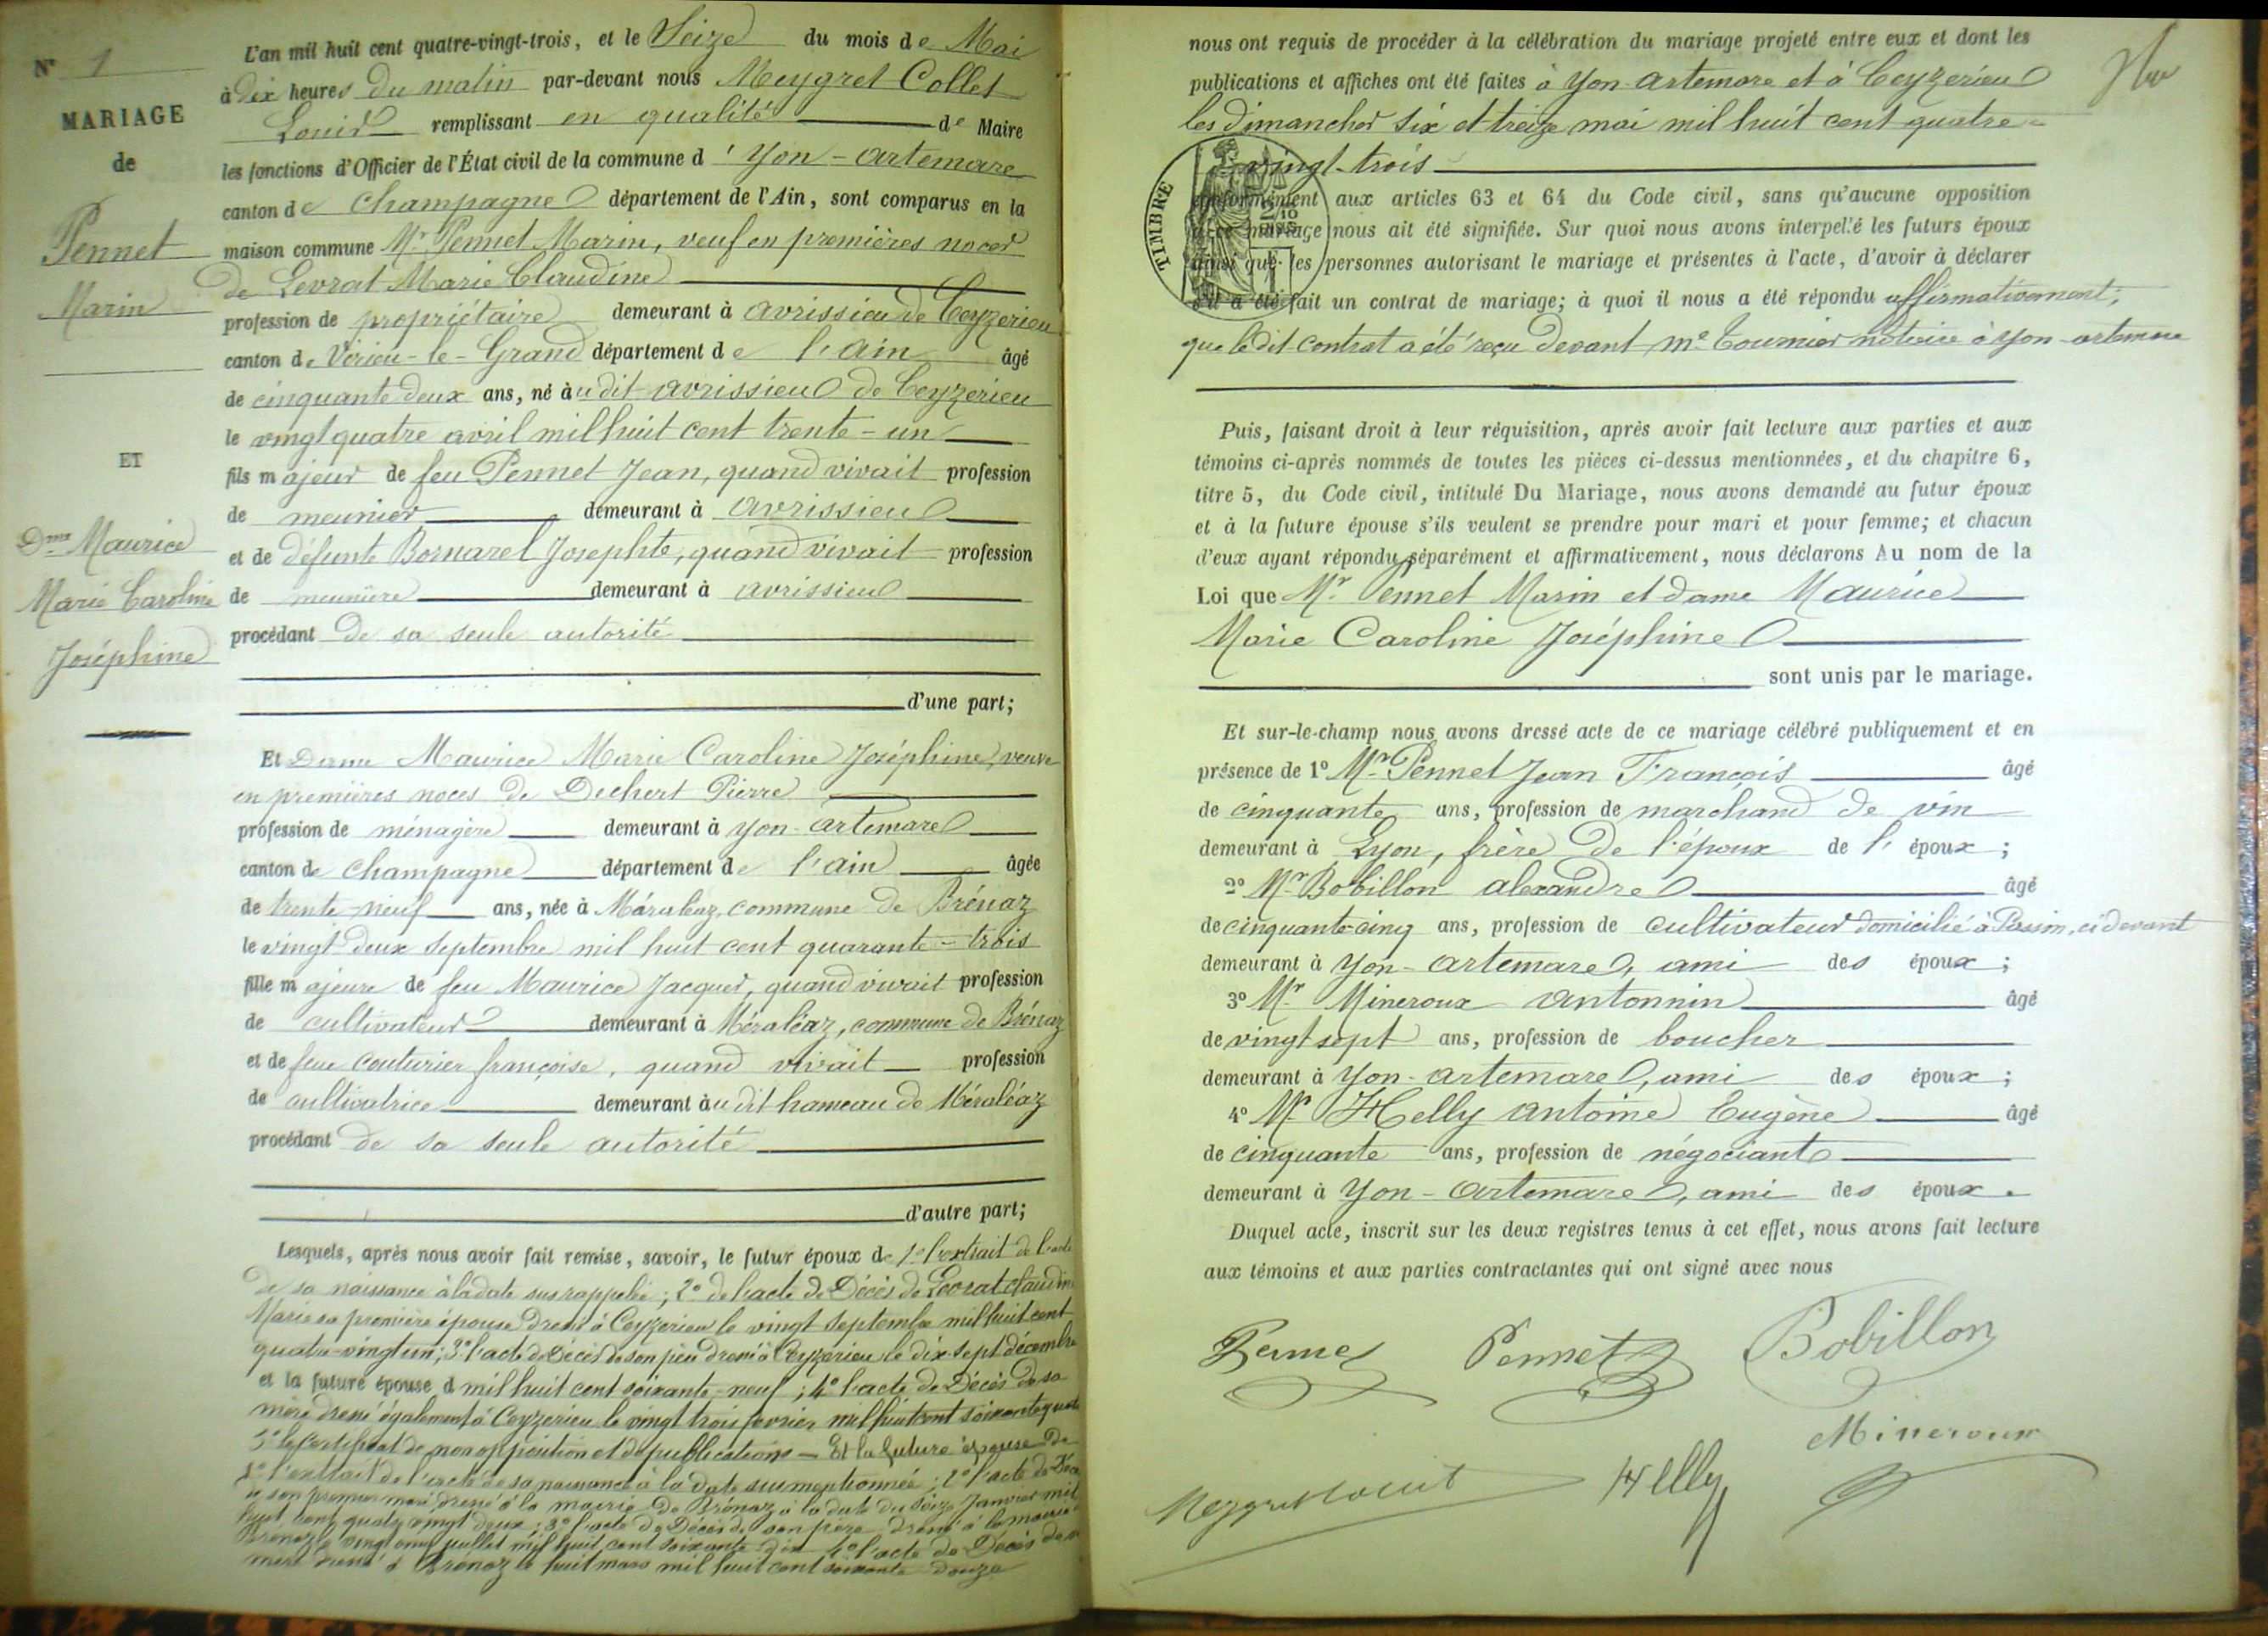 N° 1
MARIAGE
de
Pennet
Marin
ET
Dme Maurice
Marie Caroline
Joséphine
L'an mil huit cent quatre-vingt-trois, et le Seize du mois de Mai
à dix heures du matin par-devant nous Meygret Collet
Louis remplissant en qualité de Maire
les fonctions d'Officier de l'État civil de la commune d'Yon-Artemare
canton de Champagne département de l'Ain, sont comparus en la
maison commune Mr Pennet Marin, veuf en premières noces
de Levrat Marie Claudine
profession de propriétaire demeurant à Avrissieu de Ceyzerieu
canton de Virieu-le-Grand département de l'Ain âgé
de cinquante deux ans, né au dit Avrissieu de Ceyzerieu
le vingt quatre avril mil huit cent trente-un
fils majeur de feu Pennet Jean, quand vivait profession
de meunier demeurant à Avrissieu
et de défunte Bornarel Josephte, quand vivait profession
de meunière demeurant à Avrissieu
procédant de sa seule autorité
d'une part;
Et Dame Maurice Marie Caroline Joséphine, veuve
en premières noces de Dechert Pierre
profession de ménagère demeurant à Yon-Artemare
canton de Champagne département de l'Ain âgée
de trente-neuf ans, née à Méraléaz, commune de Brénaz
le vingt deux septembre mil huit cent quarante-trois
fille majeure de feu Maurice Jacques, quand vivait profession
de cultivateur demeurant à Méraléaz, commune de Brénaz
et de feue Couturier françoise, quand vivait profession
de cultivatrice demeurant au dit hameau de Méraléaz
procédant de sa seule autorité
d'autre part;
Lesquels, après nous avoir fait remise, savoir, le futur époux de 1° l'extrait de l'acte
de sa naissance à la date sus rappelée; 2° de l'acte de Décès de Levrat Claudine
Marie sa première épouse dressé à Ceyzerieu le vingt septembre mil huit cent
quatre-vingt un; 3° l'acte de Décès de son père dressé à Ceyzerieu le dix-sept décembre
et la future épouse d mil huit cent soixante-neuf; 4° l'acte de Décès de sa
mère dressé également à Ceyzerieu le vingt trois fevrier mil huit cent soixante quatre
5° le certificat de non opposition et de publications — Et la future épouse de
1° l'extrait de l'acte de sa naissance à la date susmentionnée; 2° l'acte de Décès
de son premier mari dressé à la mairie de Brénaz à la date du seize Janvier mil
huit cent quatre vingt deux; 3° l'acte de Décès de son père dressé à la mairie
Brénaz le vingt onze juillet mil huit cent soixante dix 4° l'acte de Décès de sa
mère dressé à Brénaz le huit mars mil huit cent soixante douze
nous ont requis de procéder à la célébration du mariage projeté entre eux et dont les
publications et affiches ont été faites à Yon-Artemare et à Ceyzerieu
les dimanches six et treize mai mil huit cent quatre-
vingt-trois
TIMBRE
conformément aux articles 63 et 64 du Code civil, sans qu'aucune opposition
à ce mariage nous ait été signifiée. Sur quoi nous avons interpellé les futurs époux
ainsi que les personnes autorisant le mariage et présentes à l'acte, d'avoir à déclarer
s'il a été fait un contrat de mariage; à quoi il nous a été répondu affirmativement;
que le dit contrat a été reçu devant Me Tournier notaire à Yon-Artemare
Puis, faisant droit à leur réquisition, après avoir fait lecture aux parties et aux
témoins ci-après nommés de toutes les pièces ci-dessus mentionnées, et du chapitre 6,
titre 5, du Code civil, intitulé Du Mariage, nous avons demandé au futur époux
et à la future épouse s'ils veulent se prendre pour mari et pour femme; et chacun
d'eux ayant répondu séparément et affirmativement, nous déclarons Au nom de la
Loi que Mr Pennet Marin et Dame Maurice
Marie Caroline Joséphine
sont unis par le mariage.
Et sur-le-champ nous avons dressé acte de ce mariage célébré publiquement et en
présence de 1° Mr Pennet Jean François âgé
de cinquante ans, profession de marchand de vin
demeurant à Lyon, frère de l'époux de l'époux;
2° Mr Bobillon Alexandre âgé
de cinquante-cinq ans, profession de cultivateur domicilié à Passin, ci devant
demeurant à Yon-Artemare, ami des époux;
3° Mr Mineroux Antonnin âgé
de vingt sept ans, profession de boucher
demeurant à Yon-Artemare, ami des époux;
4° Mr Helly Antoine Eugène âgé
de cinquante ans, profession de négociant
demeurant à Yon-Artemare, ami des époux.
Duquel acte, inscrit sur les deux registres tenus à cet effet, nous avons fait lecture
aux témoins et aux parties contractantes qui ont signé avec nous
Pennet Pennet Bobillon
Mineroux
Helly